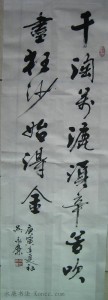 千淘萬漉雖辛苦吹
盡狂沙始得金
庚寅